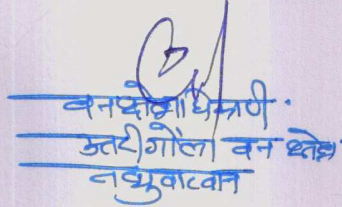 वनक्षेत्राधिकारी
उत्तरी गौला वन क्षेत्र